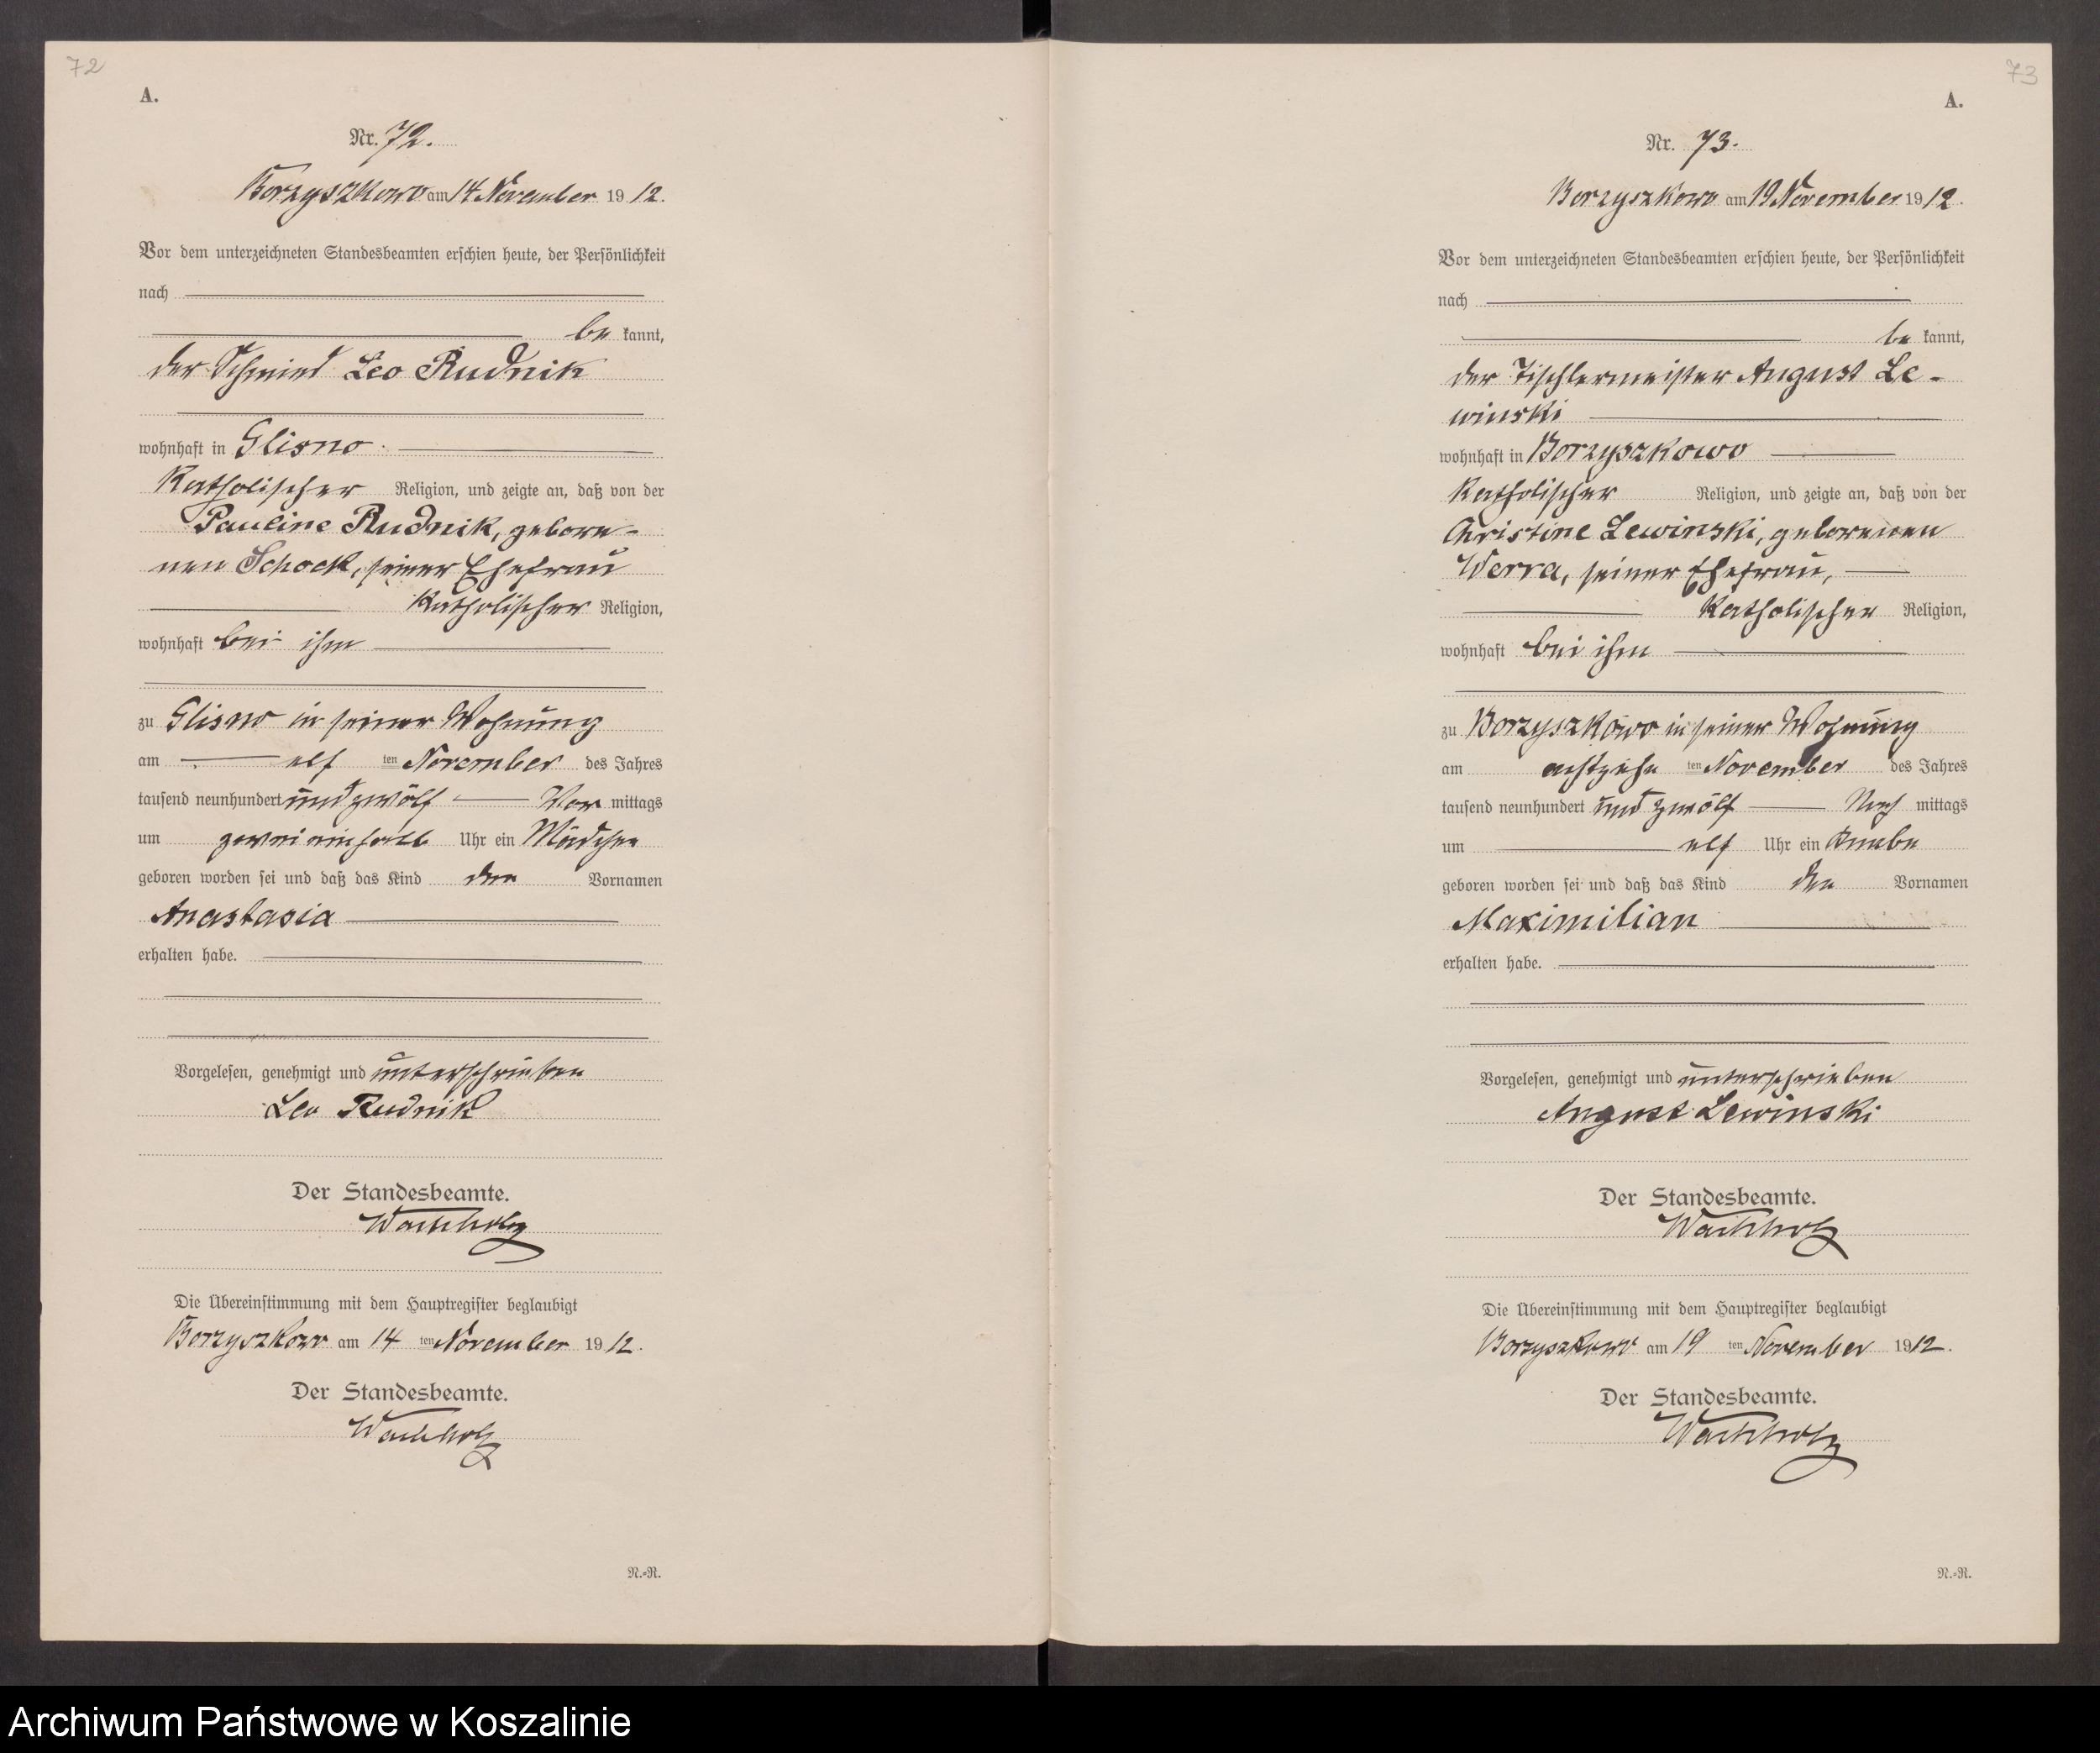 72
A.
Nr. 72.
Borzyszkowo am 14 November 1912.
Vor dem unterzeichneten Standesbeamten erschien heute, der Persönlichkeit
nach
be kannt,
der Schmied Leo Rudnik
wohnhaft in Glisno
Katholischer Religion, und zeigte an, daß von der
Pauline Rudnik, gebore-
nen Schock, seiner Ehefrau
Katholischer Religion,
wohnhaft bei ihm
zu Glisno in seiner Wohnung
am elf ten November des Jahres
tausend neunhundert und zwölf Vor mittags
um zwei einhalb Uhr ein Mädchen
geboren worden sei und daß das Kind den Vornamen
Anastasia
erhalten habe.
Vorgelesen, genehmigt und unterschrieben
Leo Rudnik
Der Standesbeamte.
Wachholz
Die Übereinstimmung mit dem Hauptregister beglaubigt
Borzyszkowo am 14 ten November 1912.
Der Standesbeamte.
Wachholz
N.=R.
73
A.
Nr. 73.
Borzyszkowo am 19 November 1912.
Vor dem unterzeichneten Standesbeamten erschien heute, der Persönlichkeit
nach
be kannt,
der Tischlermeister August Le-
winski
wohnhaft in Borzyszkowo
Katholischer Religion, und zeigte an, daß von der
Christine Lewinski, geborenen
Werra, seiner Ehefrau,
Katholischer Religion,
wohnhaft bei ihm
zu Borzyszkowo in seiner Wohnung
am achtzehn ten November des Jahres
tausend neunhundert und zwölf Nach mittags
um elf Uhr ein Knabe
geboren worden sei und daß das Kind den Vornamen
Maximilian
erhalten habe.
Vorgelesen, genehmigt und unterschrieben
August Lewinski
Der Standesbeamte.
Wachholz
Die Übereinstimmung mit dem Hauptregister beglaubigt
Borzyszkowo am 19 ten November 1912.
Der Standesbeamte.
Wachholz
N.=R.
Archiwum Państwowe w Koszalinie